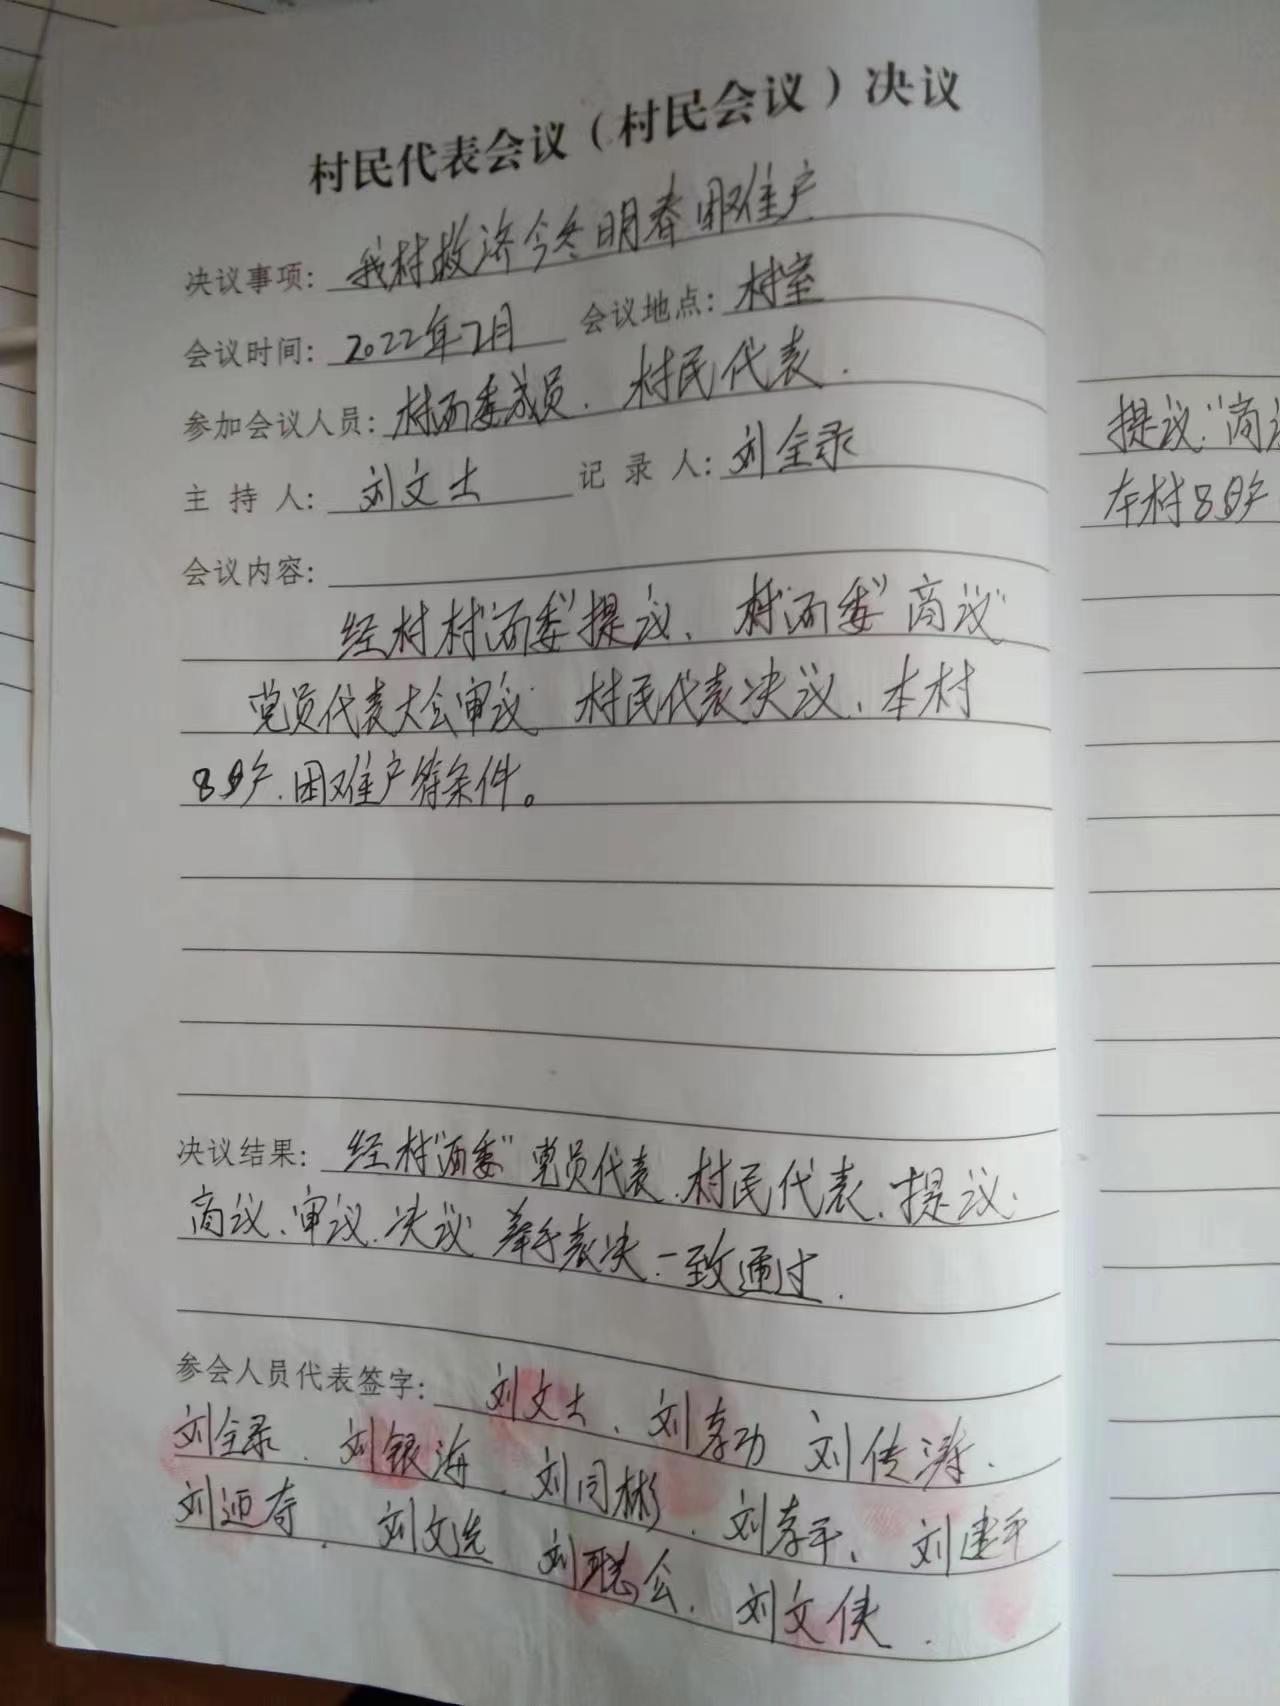 村民代表会议（村民会议）决议
决议事项：我村救济今冬明春困难户
会议时间：2022年7月 会议地点：村室
参加会议人员：村两委成员．村民代表．
主持人：刘文士 记录人：刘全录
会议内容：
经村村"两委"提议、村"两委"商议"
党员代表大会审议 村民代表决议、本村
户.困难户符条件。
决议结果：经村"两委"党员代表.村民代表、提议.
商议、审议.决议 举手表决.一致通过.
参会人员代表签字：刘文士、刘孝功 刘传涛.
刘全录．刘银海．刘同彬．刘孝平、刘建平
刘迎奇．刘文选 刘聪会．刘文侠．
提议."商
本村